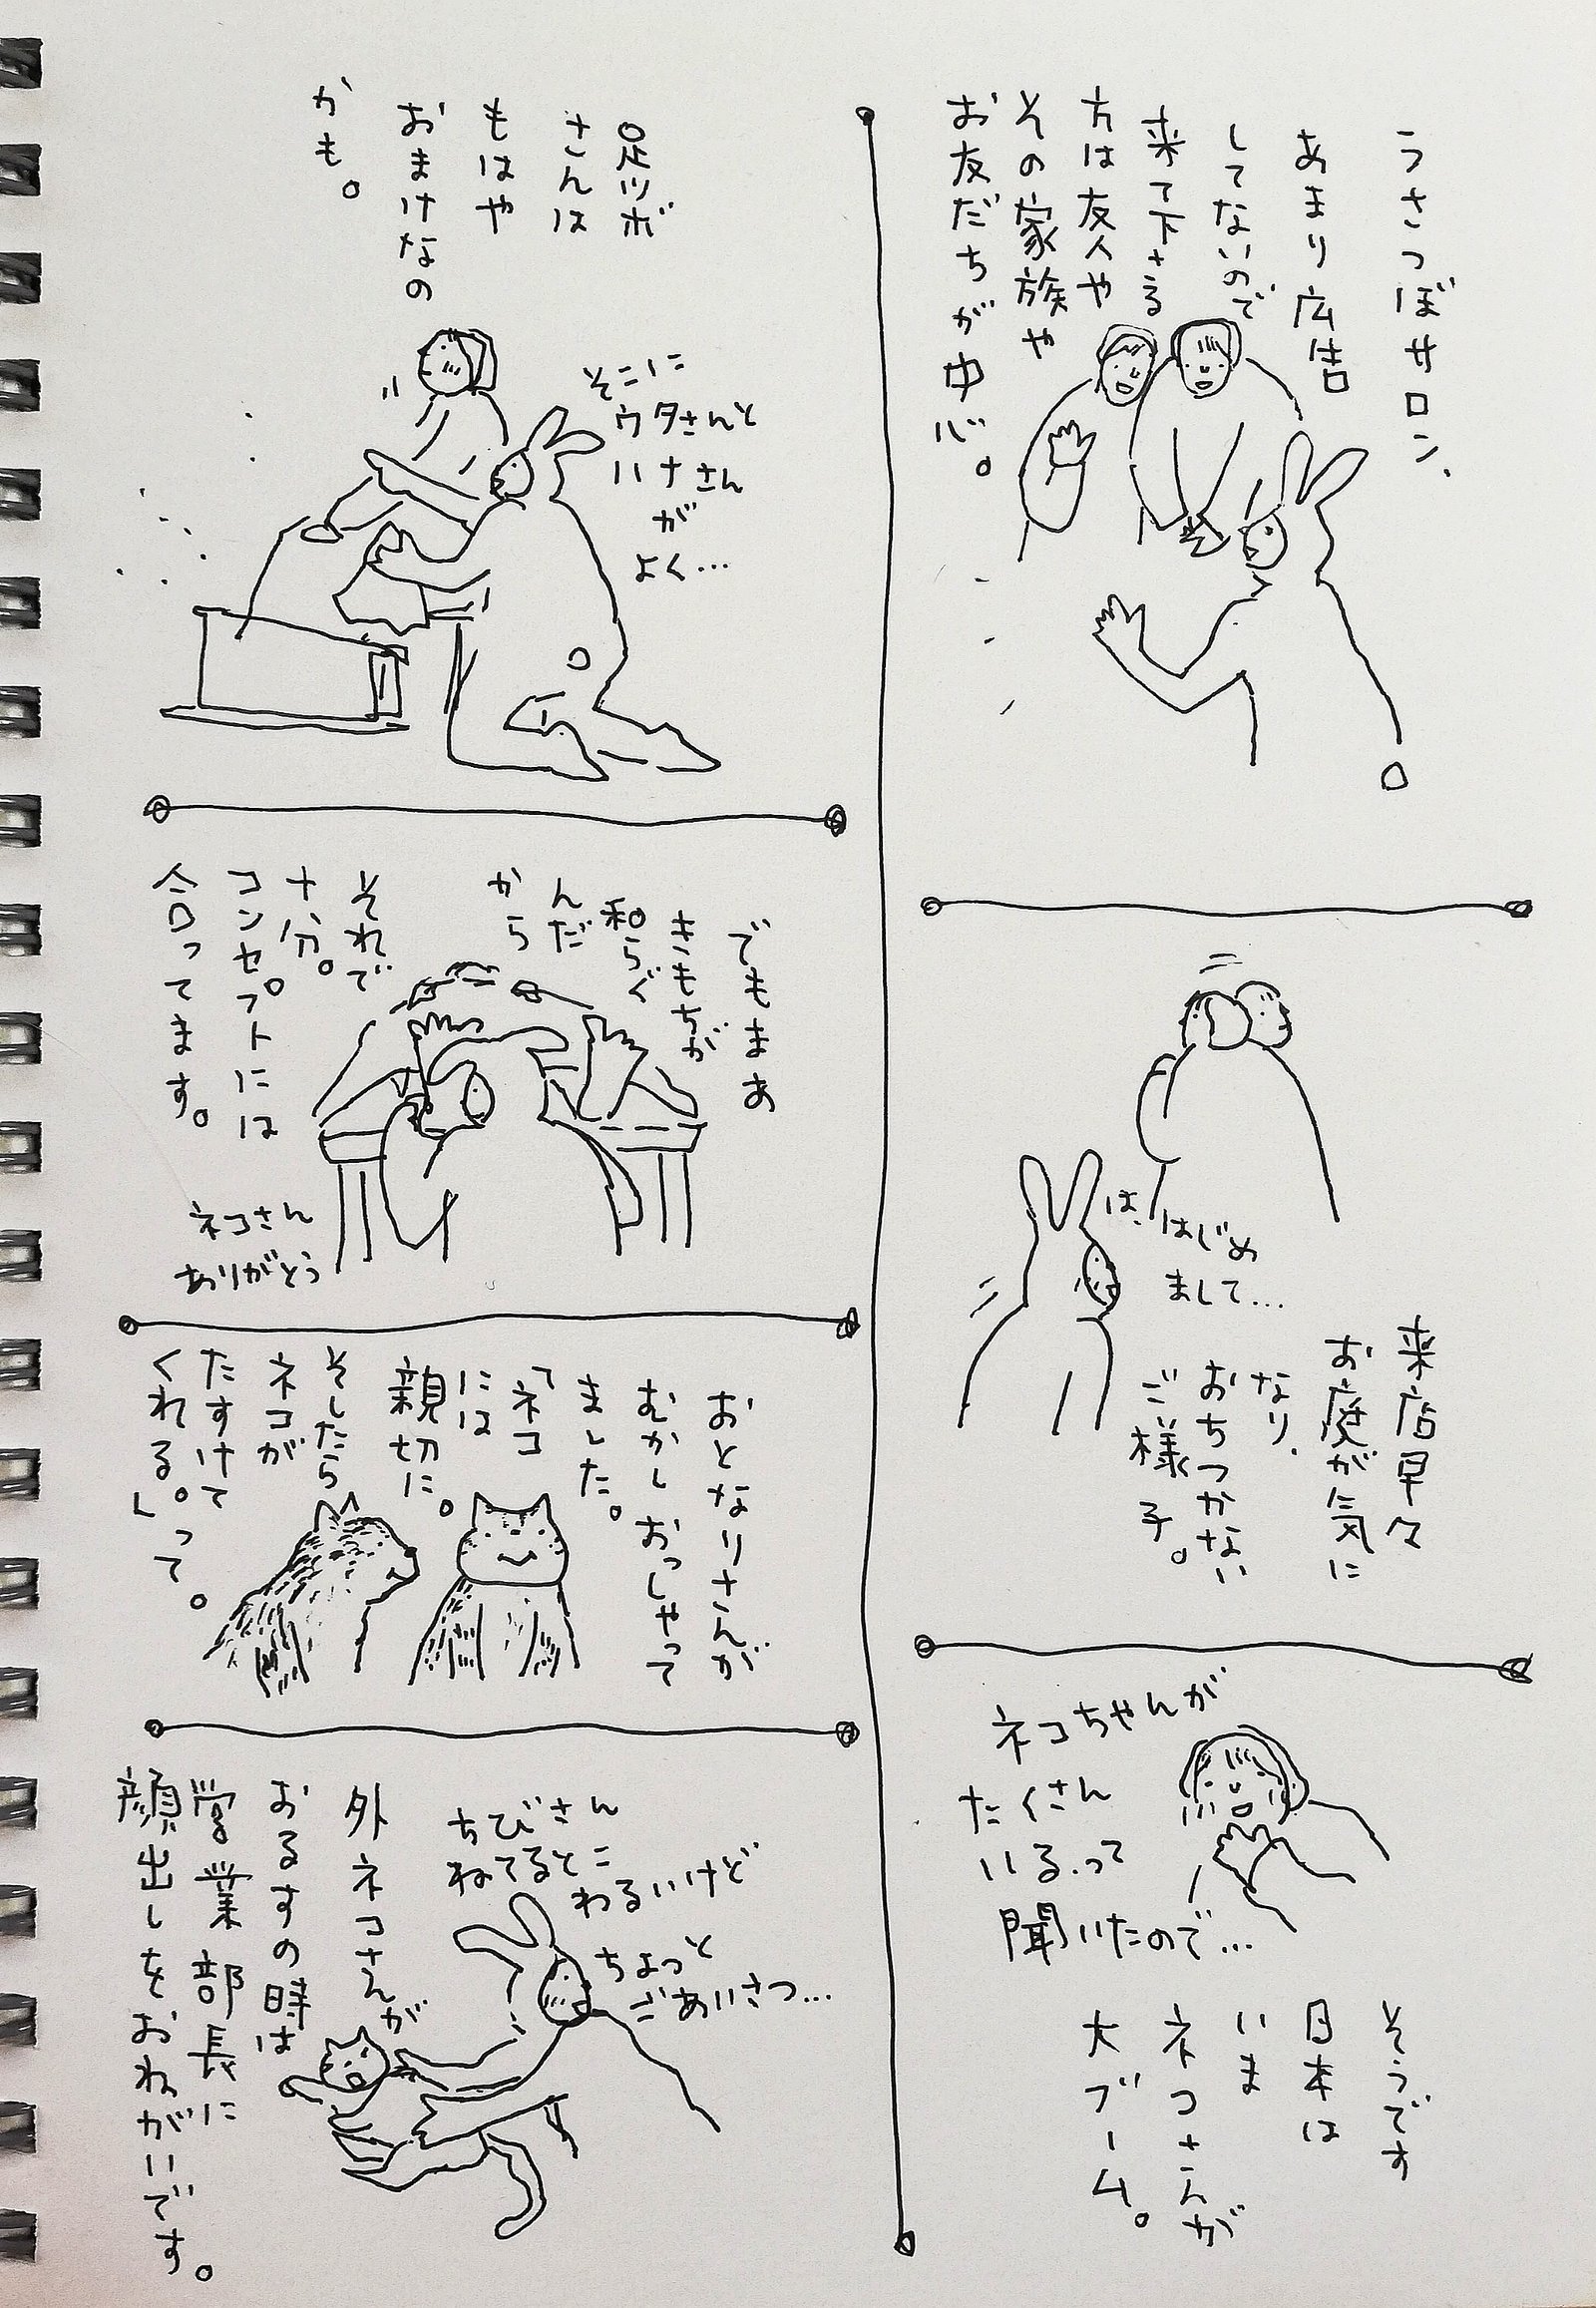 うさつぼサロン、
あまり広告
してないので
来て下さる
方は友人や
その家族や
お友だちが中心。
は、はじめ
まして…
来店早々
お庭が気に
なり、
おちつかない
ご様子。
ネコちゃんが
たくさん
いるって
聞いたので…
そうです
日本は
いま
ネコさんが
大ブーム。
足ツボ
さんは
もはや
おまけなの
かも。
そこに
ウタさんと
ハナさん
が
よく…
でもまあ
きもちが
和らぐ
んだ
から
それで
十分。
コンセプトには
合ってます。
ネコさん
ありがとう
おとなりさんが
むかしおっしゃって
ました。
「ネコ
には
親切に。
そしたら
ネコが
たすけて
くれる。」って。
ちびさん
ねてるとこ
わるいけど
ちょっと
ごあいさつ…
外ネコさんが
おるすの時は
営業部長に
顔出しをおねがいです。